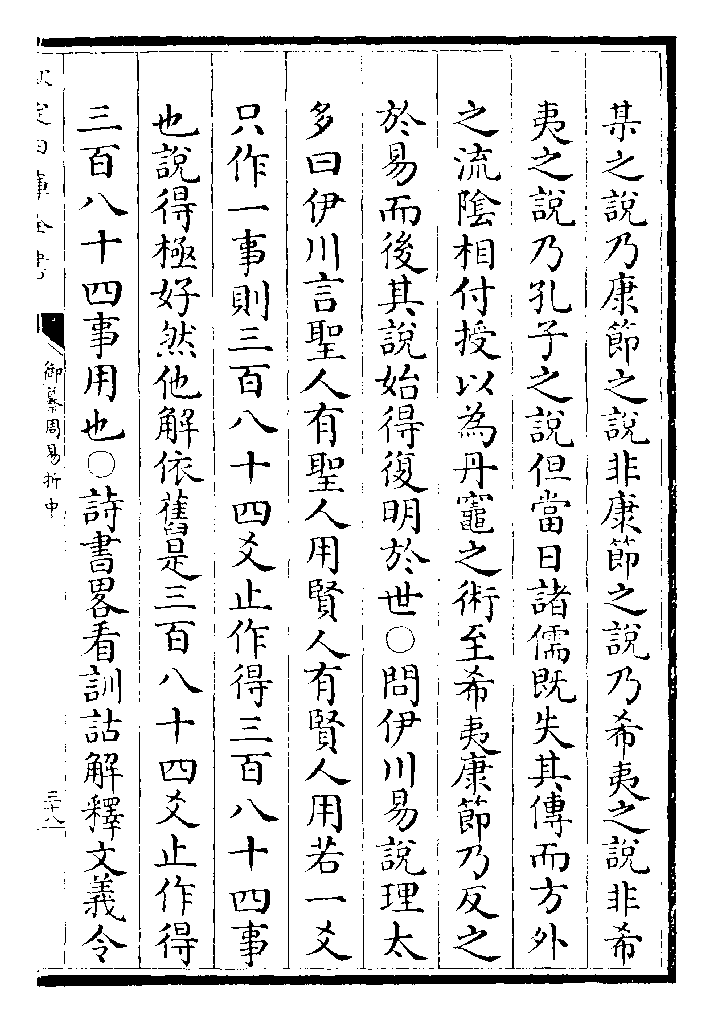 某之說乃康節之說非康節之說乃希夷之說非希
夷之說乃孔子之說但當日諸儒既失其傳而方外
之流陰相付授以為丹竈之術至希夷康節乃反之
於易而後其說始得復明於世○問伊川易說理太
多曰伊川言聖人有聖人用賢人有賢人用若一爻
只作一事則三百八十四爻止作得三百八十四事
也說得極好然他解依舊是三百八十四爻止作得
三百八十四事用也○詩書畧看訓詁解釋文義令
欽定四庫全書
御纂周易折中
三十八